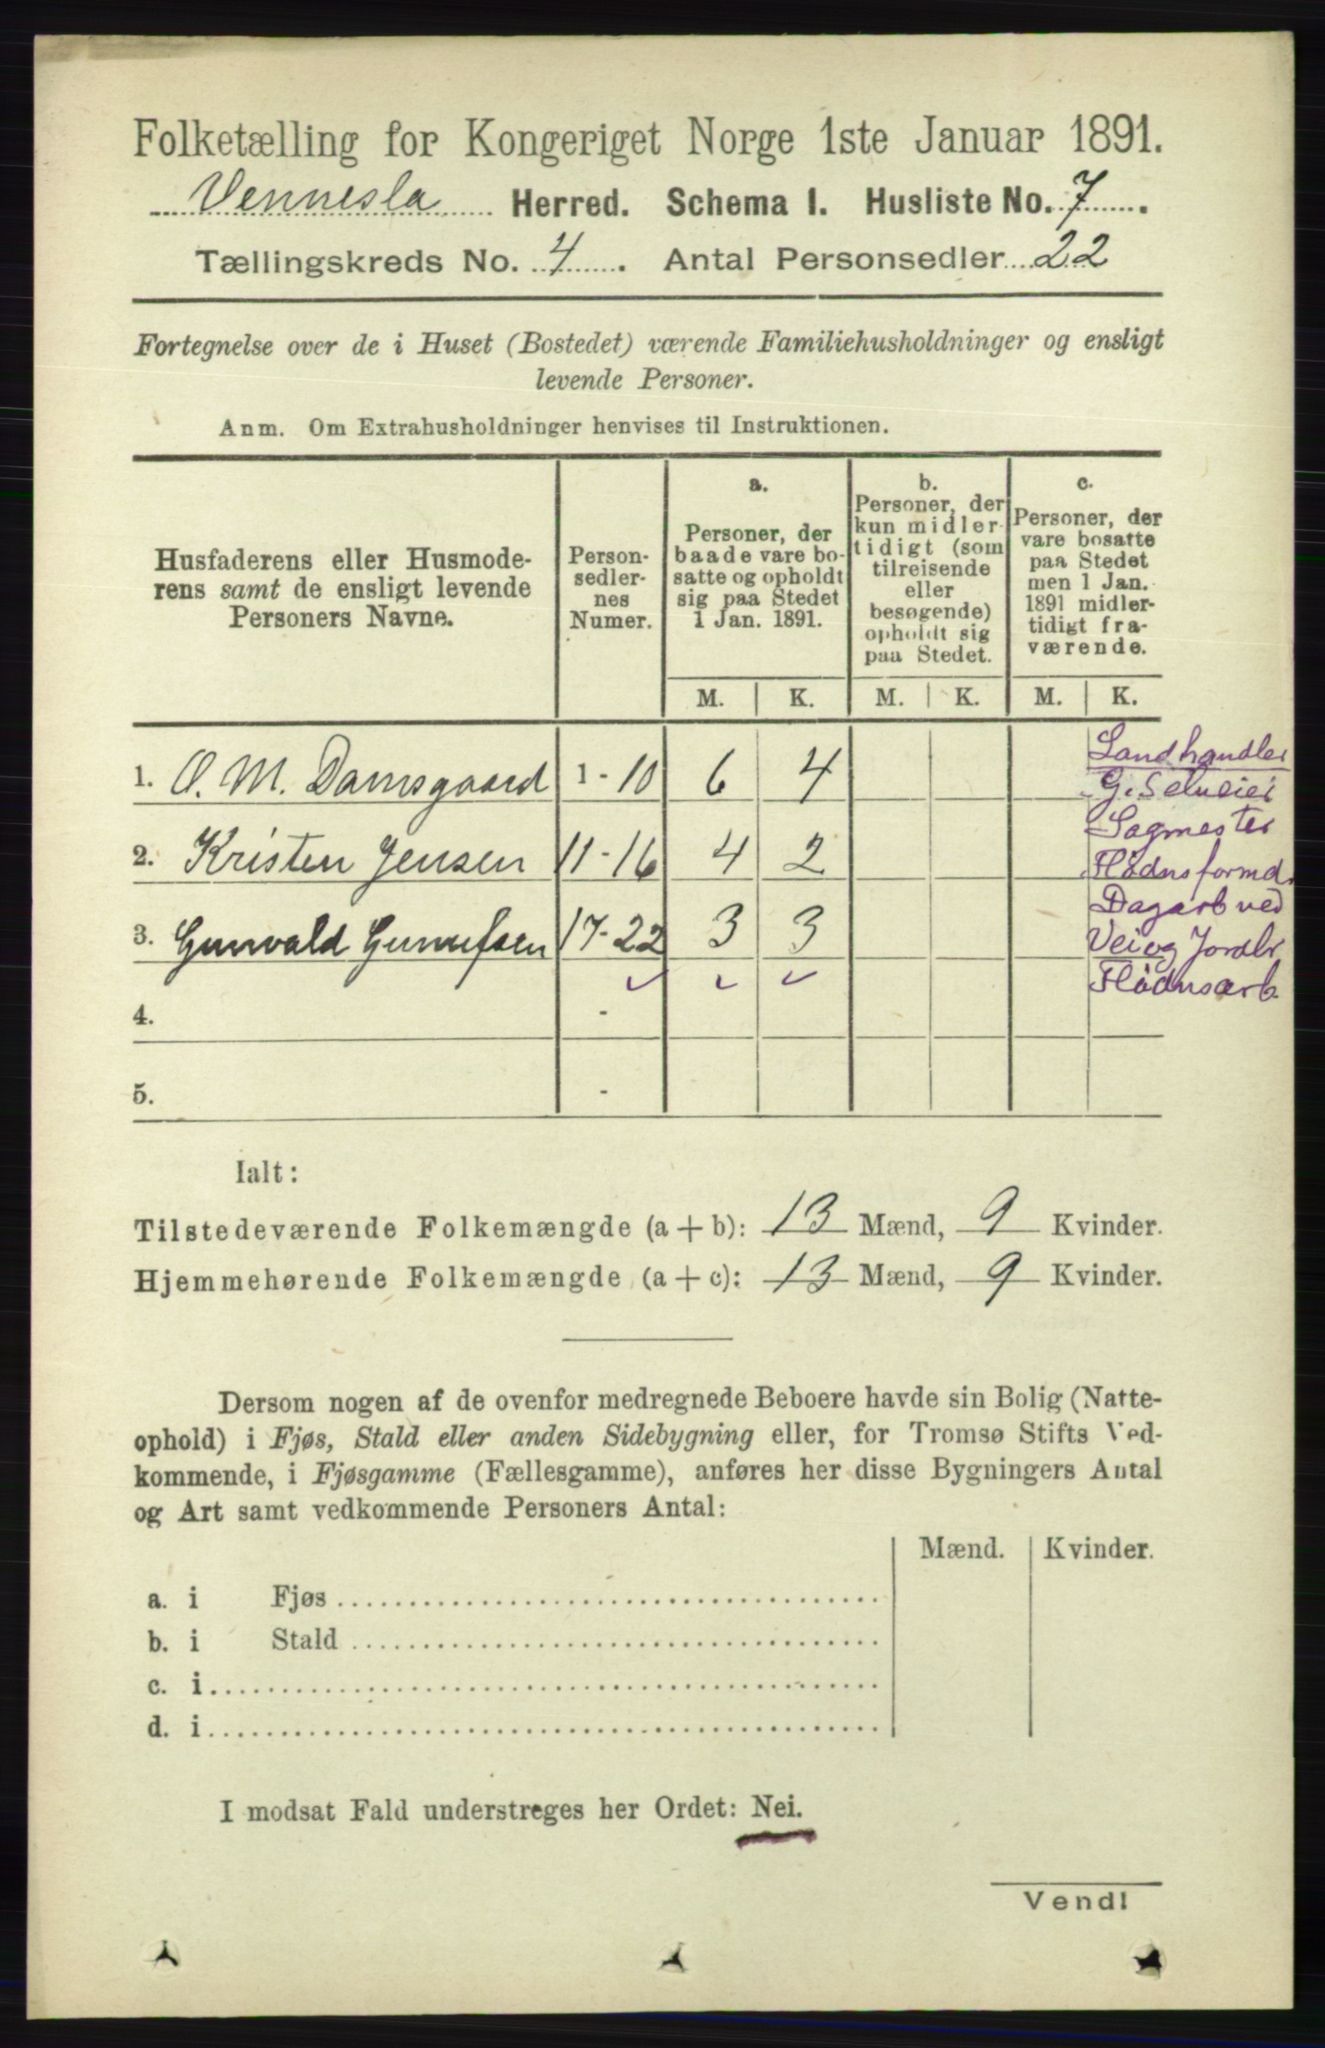 Folketælling for Kongeriget Norge 1ste Januar 1891.
Vennesla Herred. Schema I. Husliste No. 7.
Tællingskreds No. 4. Antal Personsedler 22
Fortegnelse over de i Huset (Bostedet) værende Familiehusholdninger og ensligt
levende Personer.
Anm. Om Extrahusholdninger henvises til Instruktionen.
Husfaderens eller Husmode-
rens samt de ensligt levende
Personers Navne.
Person-
sedler-
nes
Numer.
a.
Personer, der
baade vare bo-
satte og opholdt
sig paa Stedet
1 Jan. 1891.
b.
Personer, der
kun midler-
tidigt (som
tilreisende
eller
besøgende)
opholdt sig
paa Stedet.
c.
Personer, der
vare bosatte
paa Stedet
men 1 Jan.
1891 midler-
tidigt fra-
værende.
M. K. M. K. M. K.
1. O. M. Damsgaard 1 - 10 6 4 Landhandler
G. Selveier
2. Kristen Jensen 11 - 16 4 2 Sagmester
Flødnsformd.
3. Gunvald Gunufsen 17 - 22 3 3 Dagarb ved
Vei og Jordbr
Flødnsarb.
4. -
5. -
Ialt:
Tilstedeværende Folkemængde (a + b): 13 Mænd, 9 Kvinder.
Hjemmehørende Folkemængde (a + c): 13 Mænd, 9 Kvinder.
Dersom nogen af de ovenfor medregnede Beboere havde sin Bolig (Natte-
ophold) i Fjøs, Stald eller anden Sidebygning eller, for Tromsø Stifts Ved-
kommende, i Fjøsgamme (Fællesgamme), anføres her disse Bygningers Antal
og Art samt vedkommende Personers Antal:
Mænd. Kvinder.
a. i Fjøs
b. i Stald
c. i
d. i
I modsat Fald understreges her Ordet: Nei.
Vend!